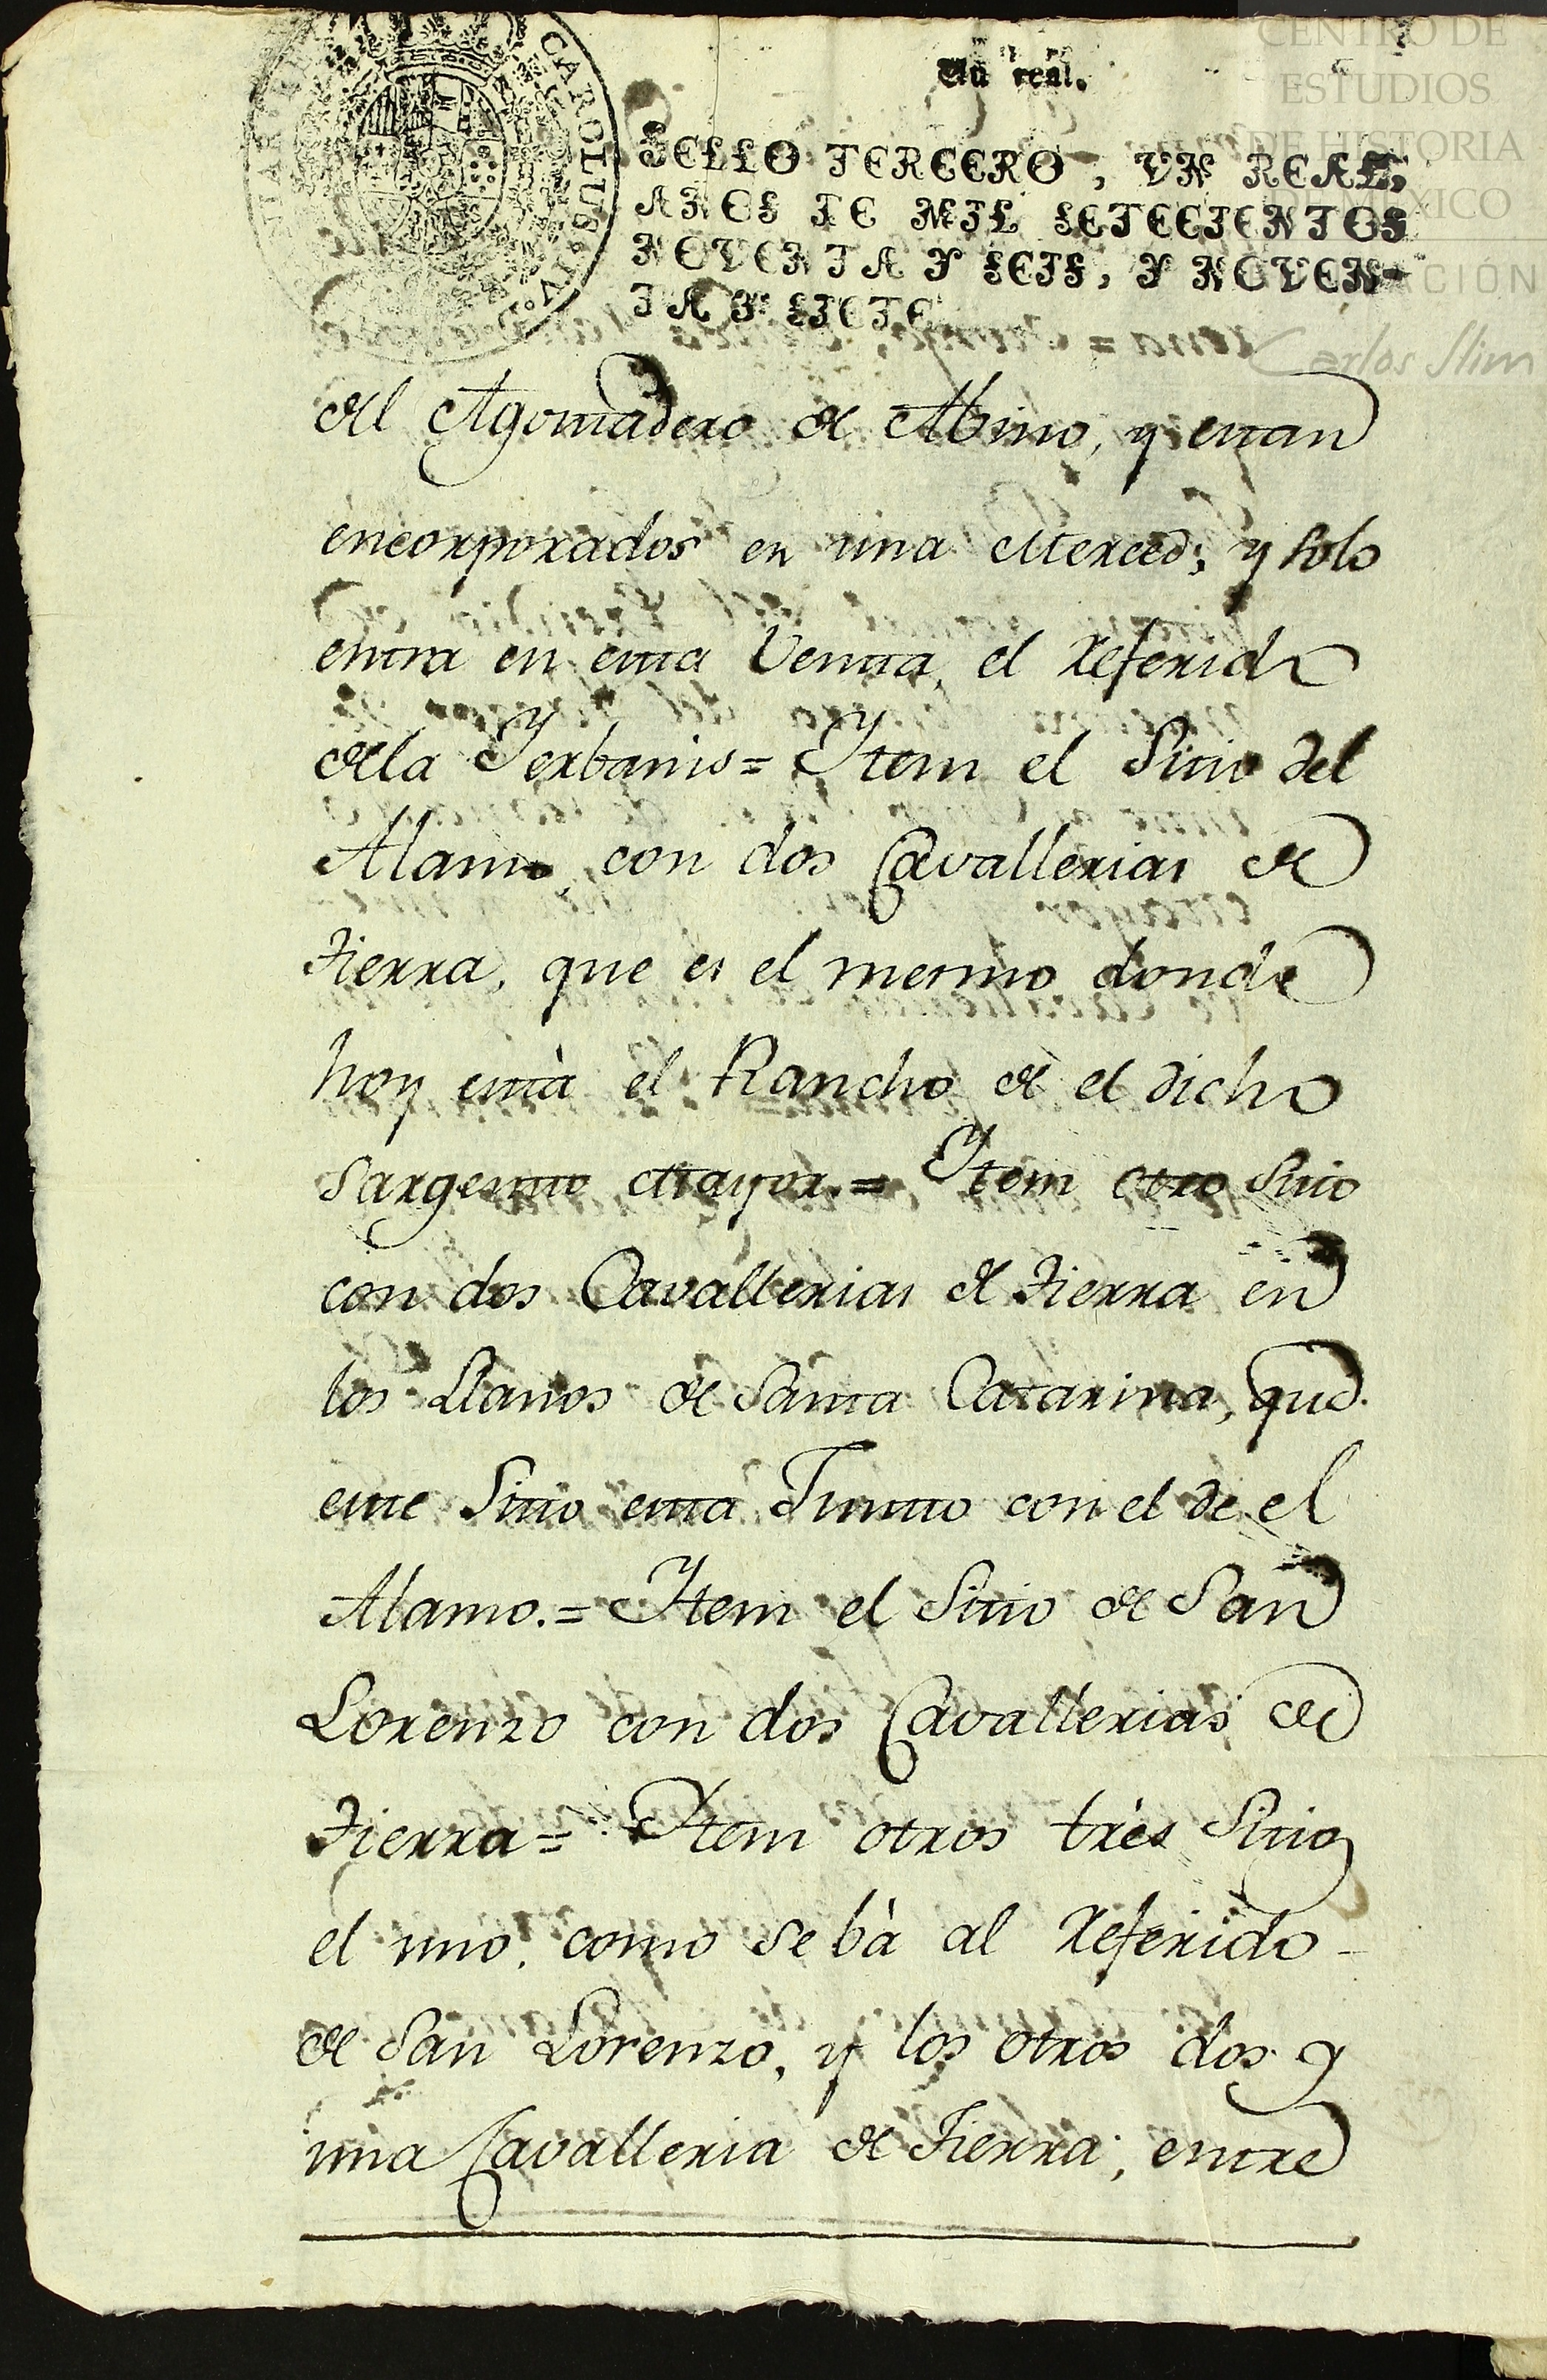 CAROLUS IV
Un real.
SELLO TERCERO, UN REAL,
AÑOS DE MIL SETECIENTOS
NOVENTA Y SEIS, Y NOVEN-
TA Y SIETE
CENTRO DE
ESTUDIOS
DE HISTORIA
DE MÉXICO
FUNDACIÓN
Carlos Slim
del Agostadero de Abino, y estan
encorporados en una Merced; y solo
entra en esta Venta, el referido
de la Yerbanis = Ytem el Sitio del
Alamo, con dos Cavallerias de
tierra, que es el mesmo donde
hoy està el Rancho de el dicho
Sargento Mayor. = Ytem otro Sitio
con dos Cavallerias de tierra en
los Llanos de Santa Catarina, que
este Sitio esta Junto con el de el
Alamo. = Ytem el Sitio de San
Lorenzo con dos Cavallerias de
tierra = Ytem otros très Sitios
el uno, como se bà al referido
de San Lorenzo, y los otros dos y
una Cavalleria de tierra, entre